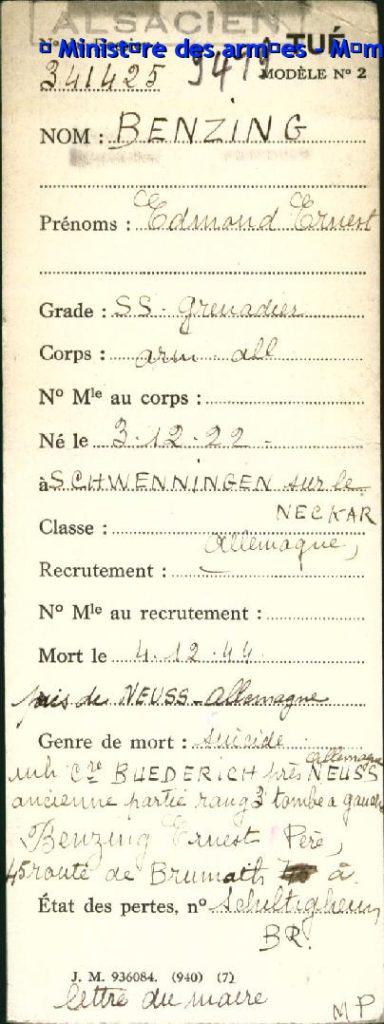 ALSACIEN
¤ Minist¤re des arm¤es - M¤m
TUÉ
341425
9419
MODÈLE Nº 2
NOM : BENZING
Prénoms : Edmond Ernest
Grade : SS. Grenadier
Corps : arm. all
Nº Mle au corps :
Né le 3.12.22
à SCHWENNINGEN sur le
NECKAR
Classe : Allemagne,
Recrutement :
Nº Mle au recrutement :
Mort le 4.12.44
près de NEUSS-Allemagne
Genre de mort : suicide
inh Cre BUEDERICH près NEUSS Allemagne
ancienne partie rang 3 tombe a gauche
Benzing Ernest Père,
45 route de Brumath à
État des pertes, nº Schiltigheim,
BR.
J. M. 936084. (940) (7)
lettre du maire
MP